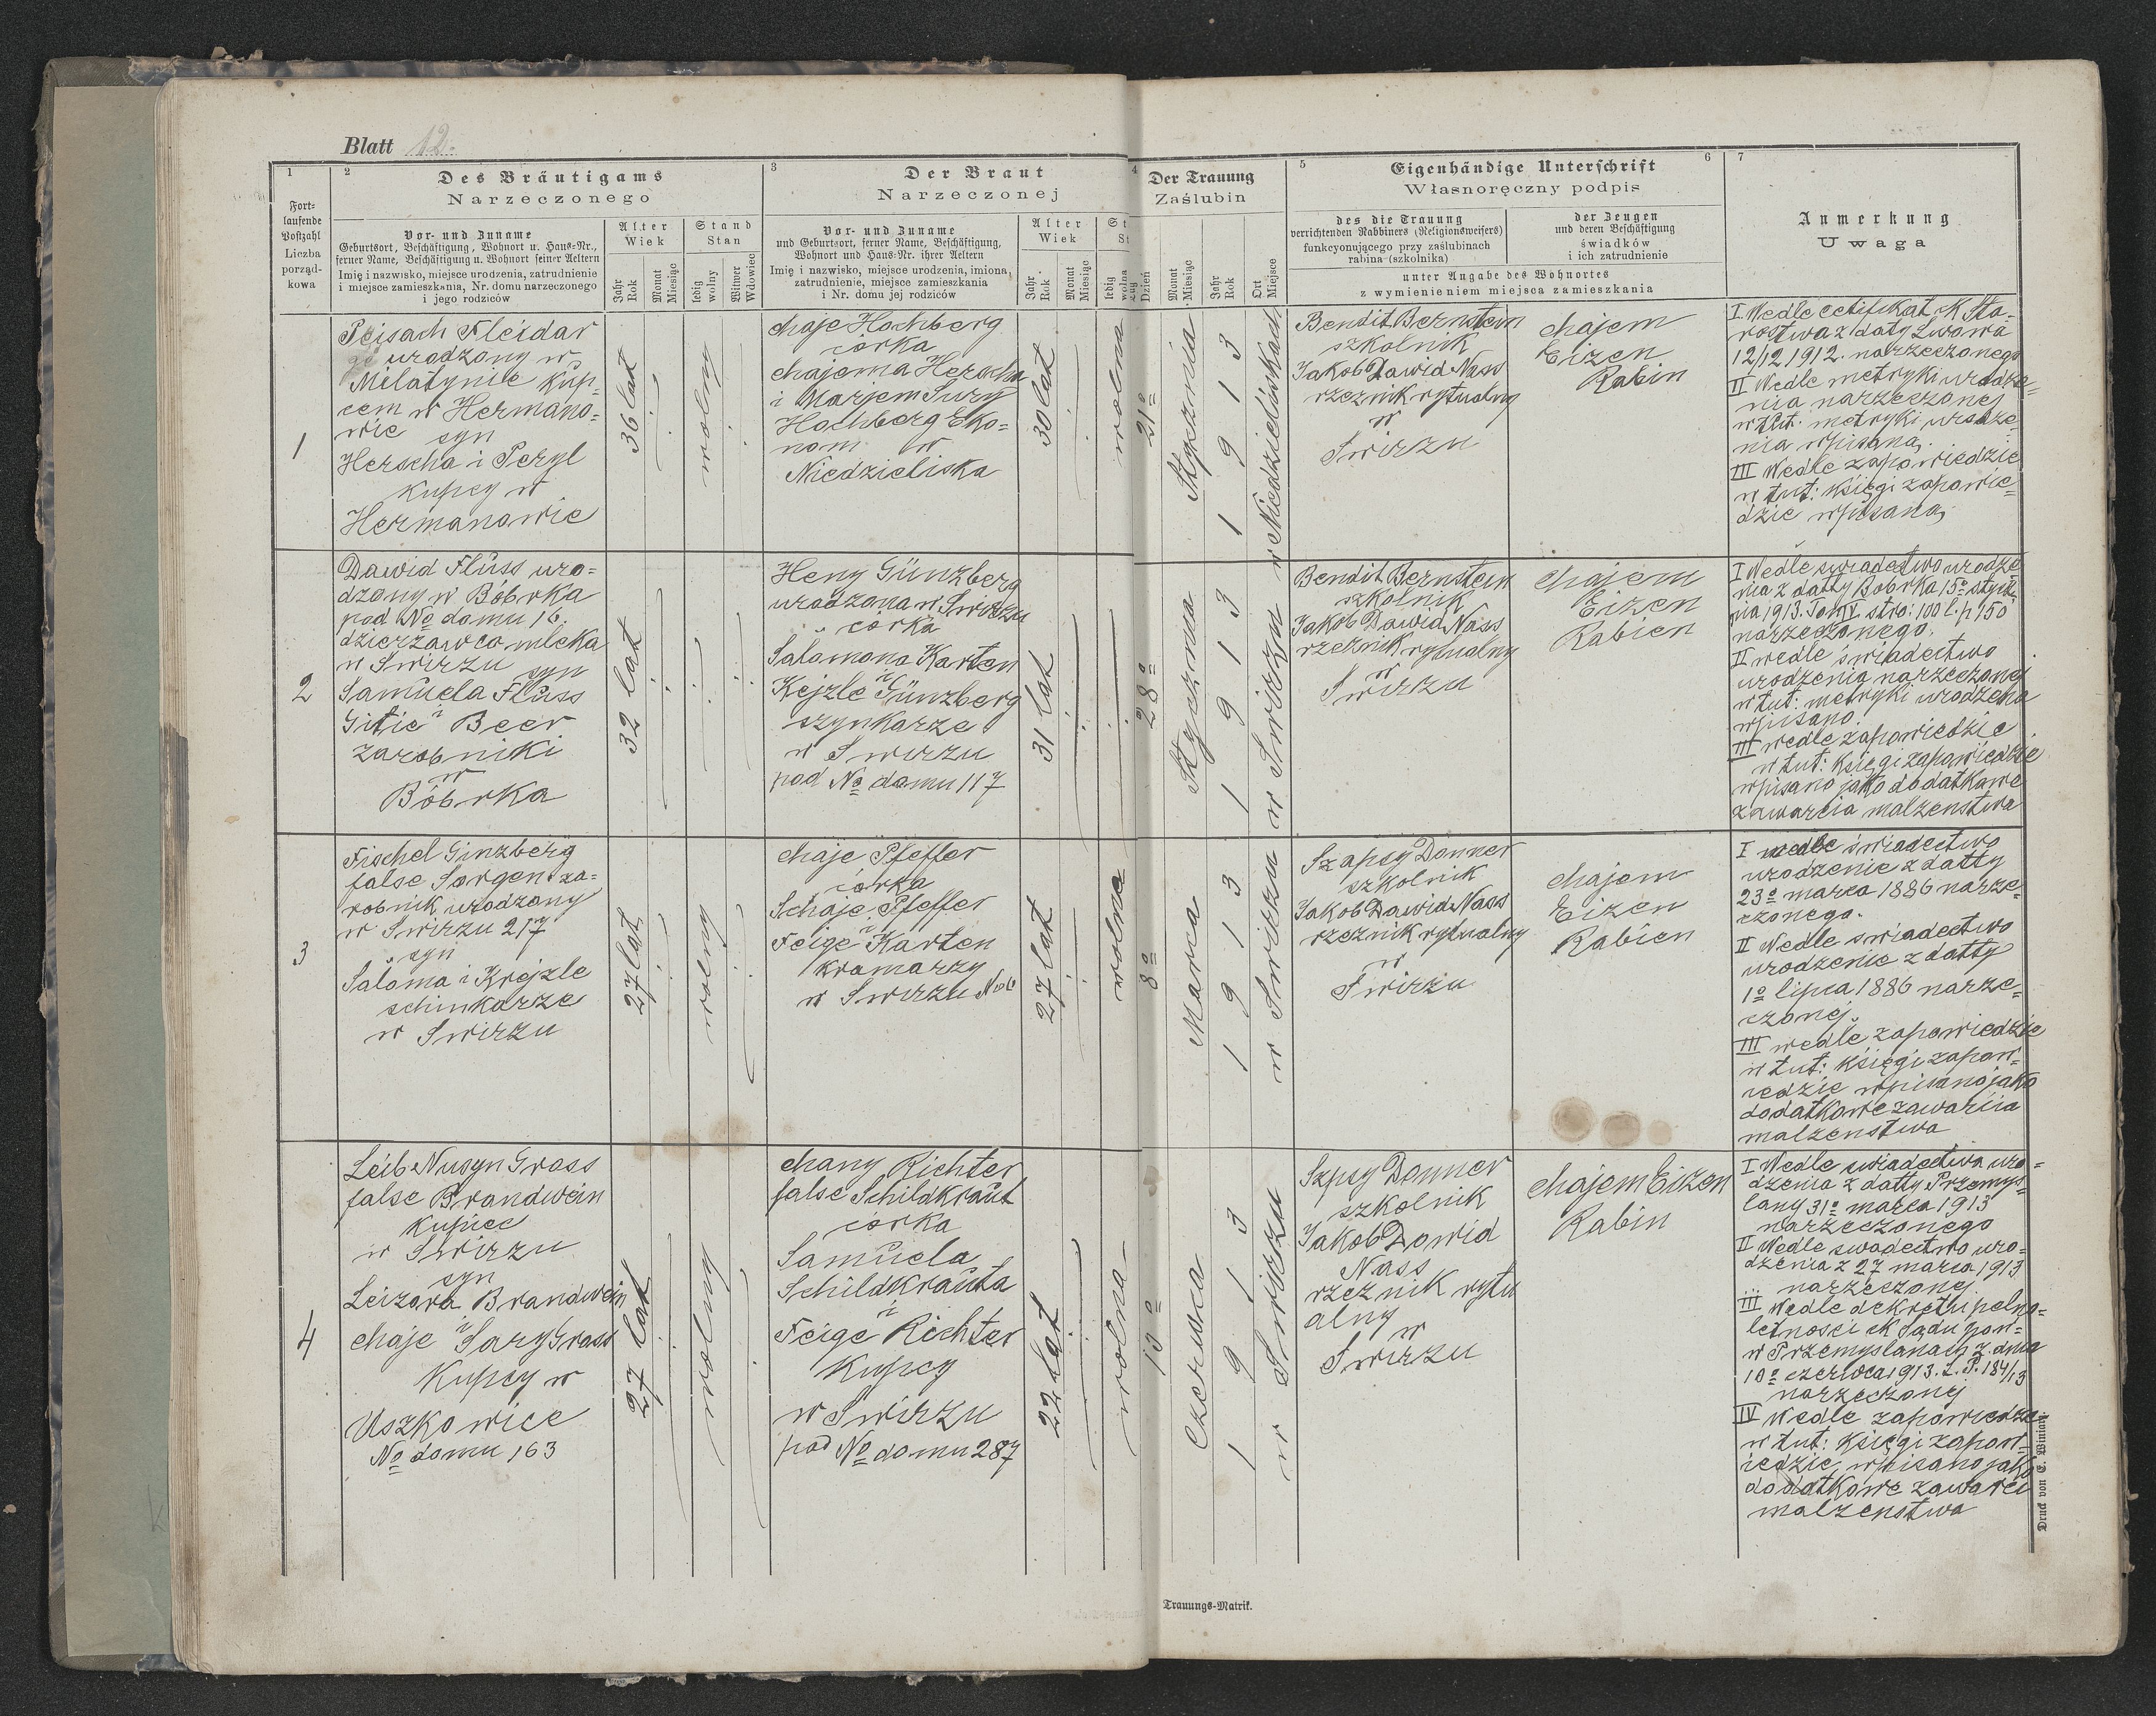 Blatt 12.
1
2
Des Bräutigams
Narzeczonego
3
Der Braut
Narzeczonej
4
Der Trauung
Zaślubin
5
Eigenhändige Unterschrift
Własnoręczny podpis
6
7
Anmerkung
Uwaga
Fort-
laufende
Postzahl
Liczba
porząd-
kowa
Vor- und Zuname
Geburtsort, Beschäftigung, Wohnort u. Haus-Nr.,
ferner Name, Beschäftigung u. Wohnort seiner Aeltern
Imię i nazwisko, miejsce urodzenia, zatrudnienie
i miejsce zamieszkania, Nr. domu narzeczonego
i jego rodziców
Alter
Wiek
Jahr
Rok
Monat
Miesiąc
Stand
Stan
ledig
wolny
Witwer
Wdowiec
Vor- und Zuname
und Geburtsort, ferner Name, Beschäftigung,
Wohnort und Haus-Nr. ihrer Aeltern
Imię i nazwisko, miejsce urodzenia, imiona,
zatrudnienie, miejsce zamieszkania
i Nr. domu jej rodziców
Alter
Wiek
Jahr
Rok
Monat
Miesiąc
St
St
ledig
wolna
Tag
Dzień
Monat
Miesiąc
Jahr
Rok
Ort
Miejsce
des die Trauung
verrichtenden Rabbiners (Religionsweisers)
funkcyonującego przy zaślubinach
rabina (szkolnika)
der Zeugen
und deren Beschäftigung
świadków
i ich zatrudnienie
unter Angabe des Wohnortes
z wymienieniem miejsca zamieszkania
1
Peisach Fleidar
urodzony w
Milatynie kup-
cem w Hermano-
wic syn
Herscha i Peryl
Kupcy w
Hermanowie
36 lat
wolny
Chaje Hochberg
córka
Chajema Herscha
i Marjem Sury
Hochberg Eko-
nom w
Niedzieliska
30 lat
wolna
21º
Stycznia
1913
w Niedzieliskach
Bendit Bernstein
szkolnik
Jakob Dawid Nass
rzeznik rytualny
w
Swirzu
Chajem
Eizen
Rabin
I Wedle certifikat K Sta-
rostwa z daty Lwowa
12/12 1912. narzeczonego
II Wedle metryki urodze-
nia narzeczonej
w tut. metryki urodze-
nia wpisana,
III Wedle zapowiedzie
w tut: księgi zapowie-
dzie wpisana,
2
Dawid Flüss uro-
dzony w Bóbrka
pod No domu 16.
dzierzawca mleka
w Swirzu syn
Samuela Flüss
i
Gitie Beer
zarobniki
w
Bóbrka
32 lat
Heny Günzberg
urodzona w Swirzu
córka
Salamona Karten
i
Kejzle Günzberg
szynkarze
w Swirzu
pod No domu 117
31 lat
28º
Stycznia
1913
w Swirzu
Bendit Bernstein
szkolnik
Jakob Dawid Nass
rzeznik rytualny
w
Swirzu
Chajem
Eizen
Rabien
I Wedle swiadectwo urodze
nia z datty Bobrka 15º stycz-
nia 1913. Tom IV. stro: 100 l. p 150
narzeczonego.
II wedle świadectwo
urodzenia narzeczonej
w tut: metryki urodzena
wpisano.
III wedle zapowiedzie
w tut: księgi zapowiedzie
wpisano jako dodatkowe
zawarcia malzenstwa
3
Fischel Ginzberg
false Sorgen za-
robnik urodzony
w Swirzu 217
syn
Saloma i Krejzle
schinkarze
w Swirzu
27 lat
wolny
Chaje Pfeffer
córka
Schaje Pfeffer
i
Feige Karten
kramarzy
w Swirzu No 6
27 lat
wolna
8º
Marca
1913
w Swirzu
Szapsy Donner
szkolnik
Jakob Dawid Nass
rzeznik rytualny
w
Swirzu
Chajem
Eizen
Rabien
I wedle świadectwo
urodzenie z datty
23º marca 1886 narze-
czonego.
II Wedle swiadectwo
urodzenie z datty
1º lipca 1886 narze-
czonej.
III wedle zapowiedzie
w tut: księgi zapow-
iedzie wpisano jako
dodatkowe zawarcia
malzenstwa
4
Leib Nusyn Grass
false Brandwein
Kupiec
w Swirzu
syn
Leizora Brandwein
i
Chaje Sary Grass
Kupcy w
Uszkowice
No domu 163
27 lat
wolny
Chany Richter
false Schildkraut
córka
Samuela
Schildkrauta
i
Feige Richter
Kupcy
w Swirzu
pod No domu 287
22 lat
wolna
Czerwca
1913
w Swirzu
Szpsy Donner
szkolnik
Jakob Dowid
Nass
rzeznik rytu
alny
w
Swirzu
Chajem Eizen
Rabin
I Wedle swiadectwa uro-
dzenia z datty Przemys-
lany 31º marca 1913
narzeczonego
II Wedle swadectwo uro-
dzenia z 27 marca 1913
narzeczonej
III Wedle dekretu pelno-
letnosci K Sądu pow-
w Przemyslanach z dnia
10º czerwca 1913. L. P. 184/13
narzeczonej
IV Wedle zapowiedze
w tut: księgi zapow-
iedzie wpisano jako
dodatkowe zawarci
malzenstwa
Druck von E. Winiarz.
Trauungs-Matrik.